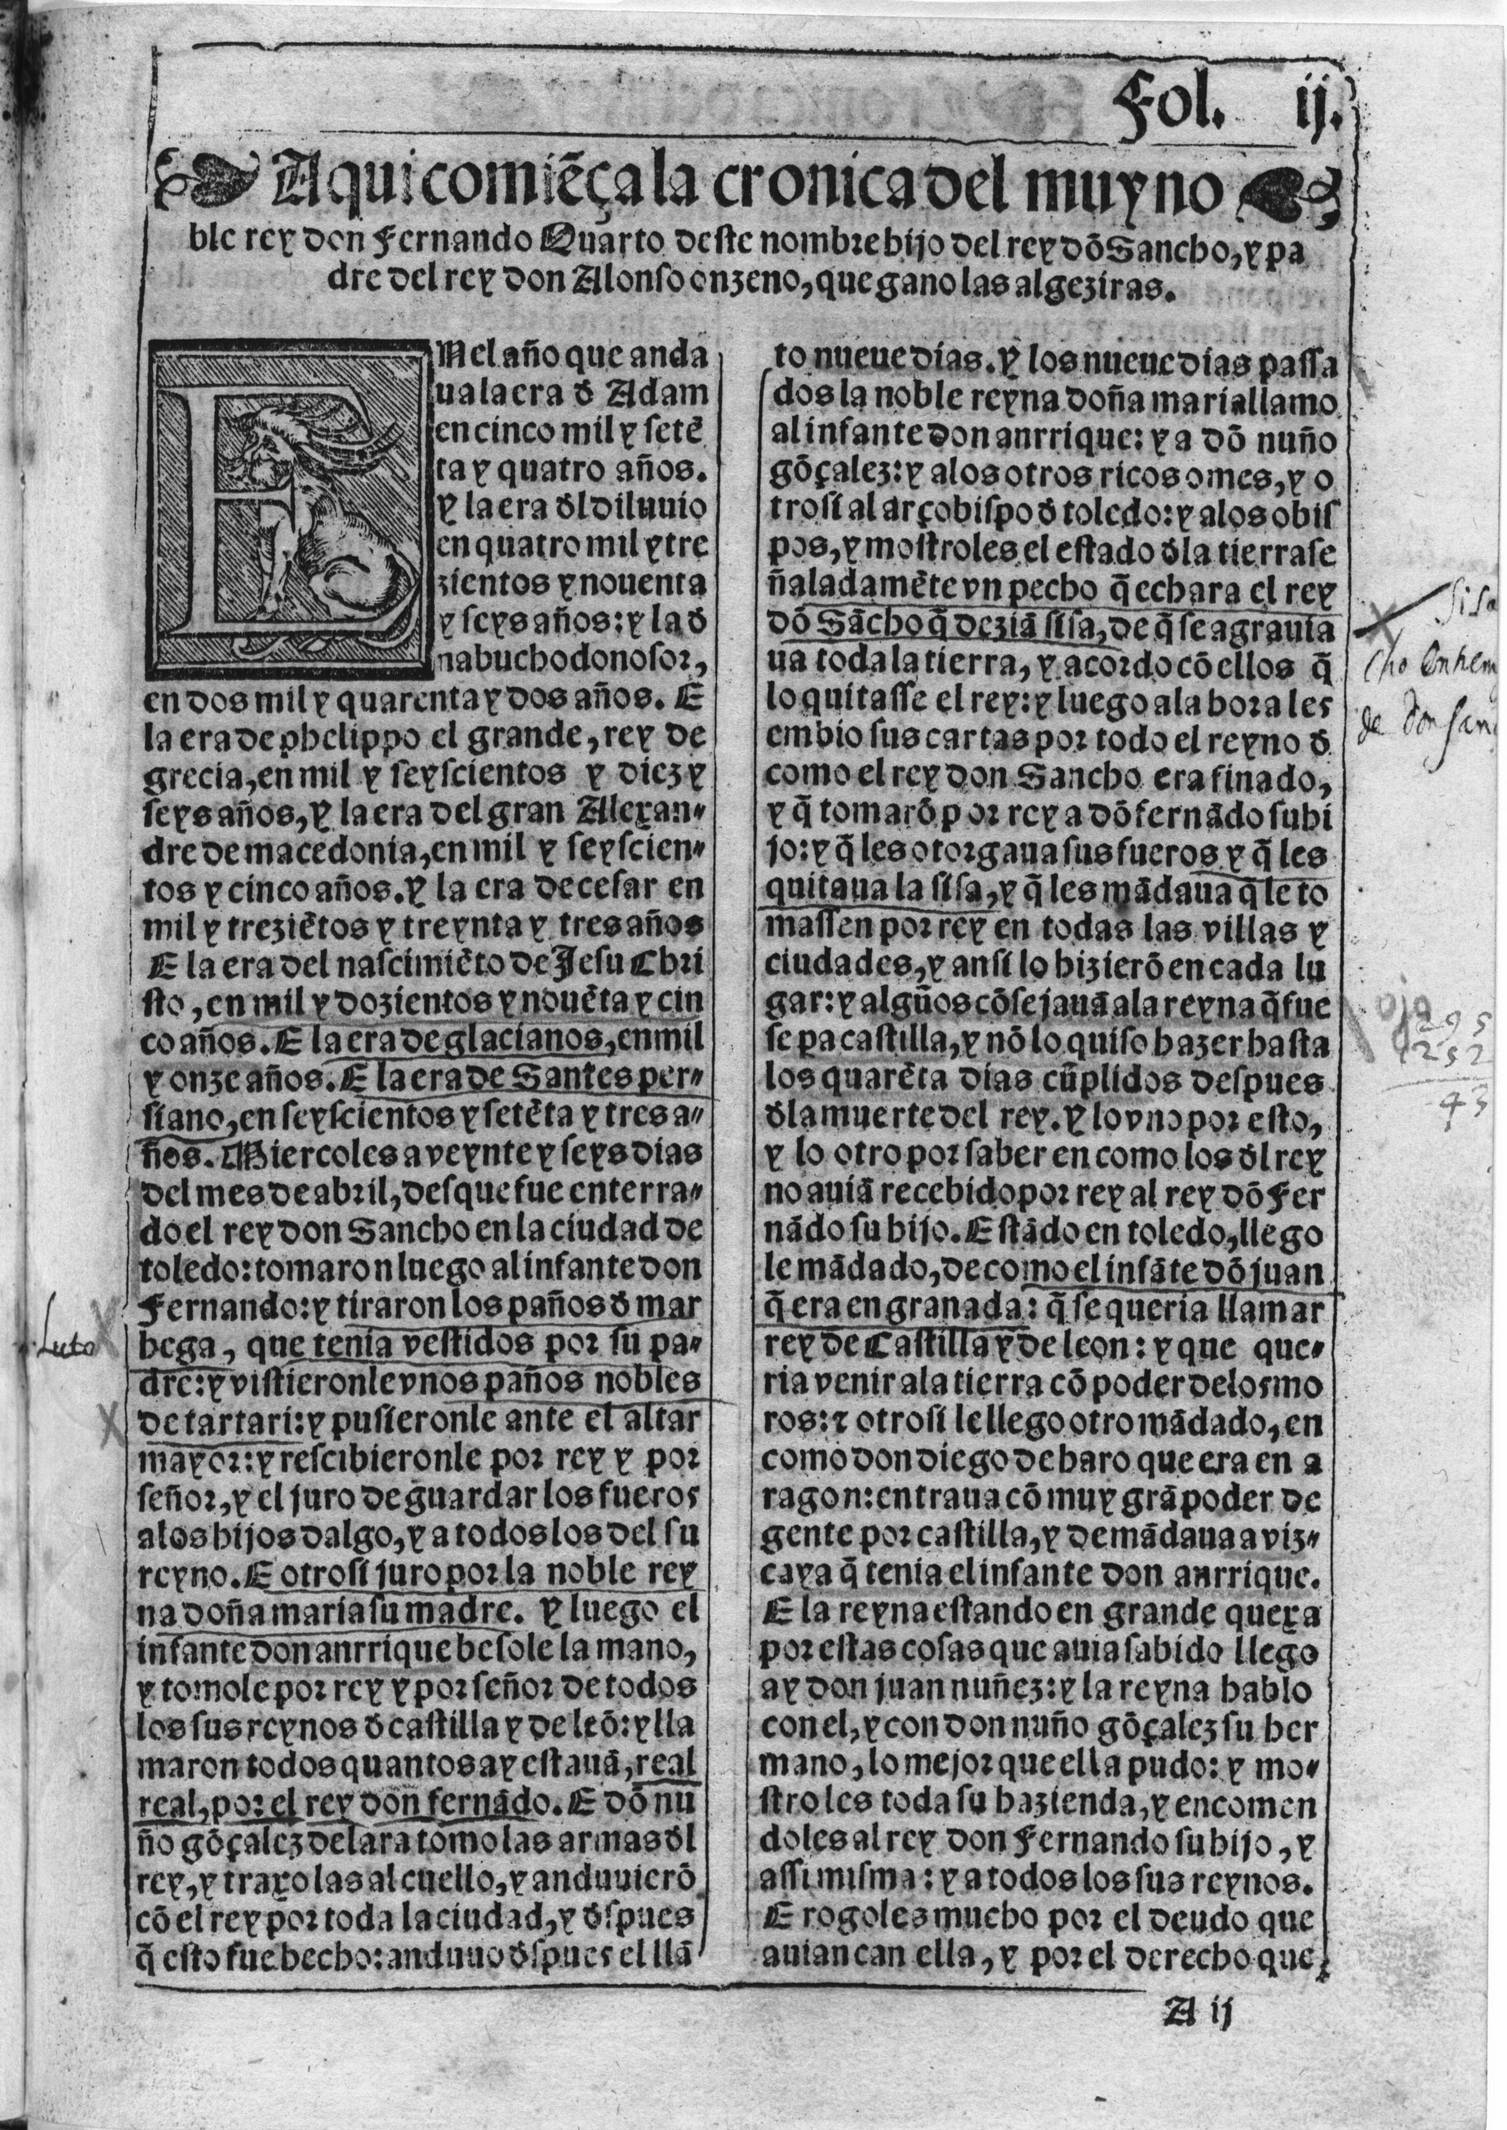 Fol. ij.
Aqui comiẽça la cronica del muy no
ble rey don Fernando Quarto deste nombre hijo del rey dõ Sancho, y pa
dre del rey don Alonso onzeno, que gano las algeziras.
EN el año que anda
ua la era đ Adam
en cinco mil y setẽ
ta y quatro años.
Y la era đl diluuio
en quatro mil y tre
zientos y nouenta
y seys años: y la đ
nabuchodonosor,
en dos mil y quarenta y dos años. E
la era de phelippo el grande, rey de
grecia, en mil y seyscientos y diez y
seys años, y la era del gran Alexan-
dre de macedonia, en mil y seyscien-
tos y cinco años. Y la era de cesar en
mil y treziẽtos y treynta y tres años
E la era del nascimiẽto de Jesu Chri
sto, en mil y dozientos y nouẽta y cin
co años. E la era de glacianos, en mil
y onze años. E la era de Santes per-
siano, en seyscientos y setẽta y tres a-
ños. Miercoles a veynte y seys dias
del mes de abril, desque fue enterra-
do el rey don Sancho en la ciudad de
toledo: tomaron luego al infante don
Fernando: y tiraron los paños đ mar
hega, que tenia vestidos por su pa-
dre: y vistieronle vnos paños nobles
de tartari: y pusieronle ante el altar
mayor: y rescibieronle por rey y por
señor, y el juro de guardar los fueros
a los hijos dalgo, y a todos los del su
reyno. E otrosi juro por la noble rey
na doña maria su madre. Y luego el
infante don anrrique besole la mano,
y tomole por rey y por señor de todos
los sus reynos đ castilla y de leõ: y lla
maron todos quantos ay estauã, real
real, por el rey don fernãdo. E dõ nu
ño gõçalez de lara tomo las armas đl
rey, y traxo las al cuello, y anduuierõ
cõ el rey por toda la ciudad, y đspues
q̃ esto fue hecho: anduuo đspues el llã
to nueue dias. Y los nueue dias passa
dos la noble reyna doña maria llamo
al infante don anrrique: y a dõ nuño
gõçalez: y a los otros ricos omes, y o
trosi al arçobispo đ toledo: y a los obis
pos, y mostroles el estado đ la tierra se
ñaladamẽte vn pecho q̃ echara el rey
dõ Sãcho q̃ deziã sisa, de q̃ se agrauia
ua toda la tierra, y acordo cõ ellos q̃
lo quitasse el rey: y luego a la hora les
embio sus cartas por todo el reyno đ
como el rey don Sancho era finado,
y q̃ tomarõ por rey a dõ fernãdo su hi
jo: y q̃ les otorgaua sus fueros y q̃ les
quitaua la sisa, y q̃ les mãdaua q̃ le to
massen por rey en todas las villas y
ciudades, y ansi lo hizierõ en cada lu
gar: y algũos cõsejauã a la reyna q̃ fue
se pa castilla, y nõ lo quiso hazer hasta
los quarẽta dias cũplidos despues
đ la muerte del rey. Y lo vno por esto,
y lo otro por saber en como los đl rey
no auiã recebido por rey al rey dõ Fer
nãdo su hijo. Estãdo en toledo, llego
le mãdado, de como el infãte dõ juan
q̃ era en granada: q̃ se queria llamar
rey de Castilla y de leon: y que que-
ria venir a la tierra cõ poder de los mo
ros: ⁊ otrosi le llego otro mãdado, en
como don diego de haro que era en a
ragon: entraua cõ muy grã poder de
gente por castilla, y demãdaua a viz-
caya q̃ tenia el infante don anrrique.
E la reyna estando en grande quexa
por estas cosas que auia sabido llego
ay don juan nuñez: y la reyna hablo
con el, y con don nuño gõçalez su her
mano, lo mejor que ella pudo: y mo-
stro les toda su hazienda, y encomen
doles al rey don Fernando su hijo, y
assi misma: y a todos los sus reynos.
E rogoles mucho por el deudo que
auian can ella, y por el derecho que
A ij
Luto
Sisa
de don San
ojo
1295
1252
43